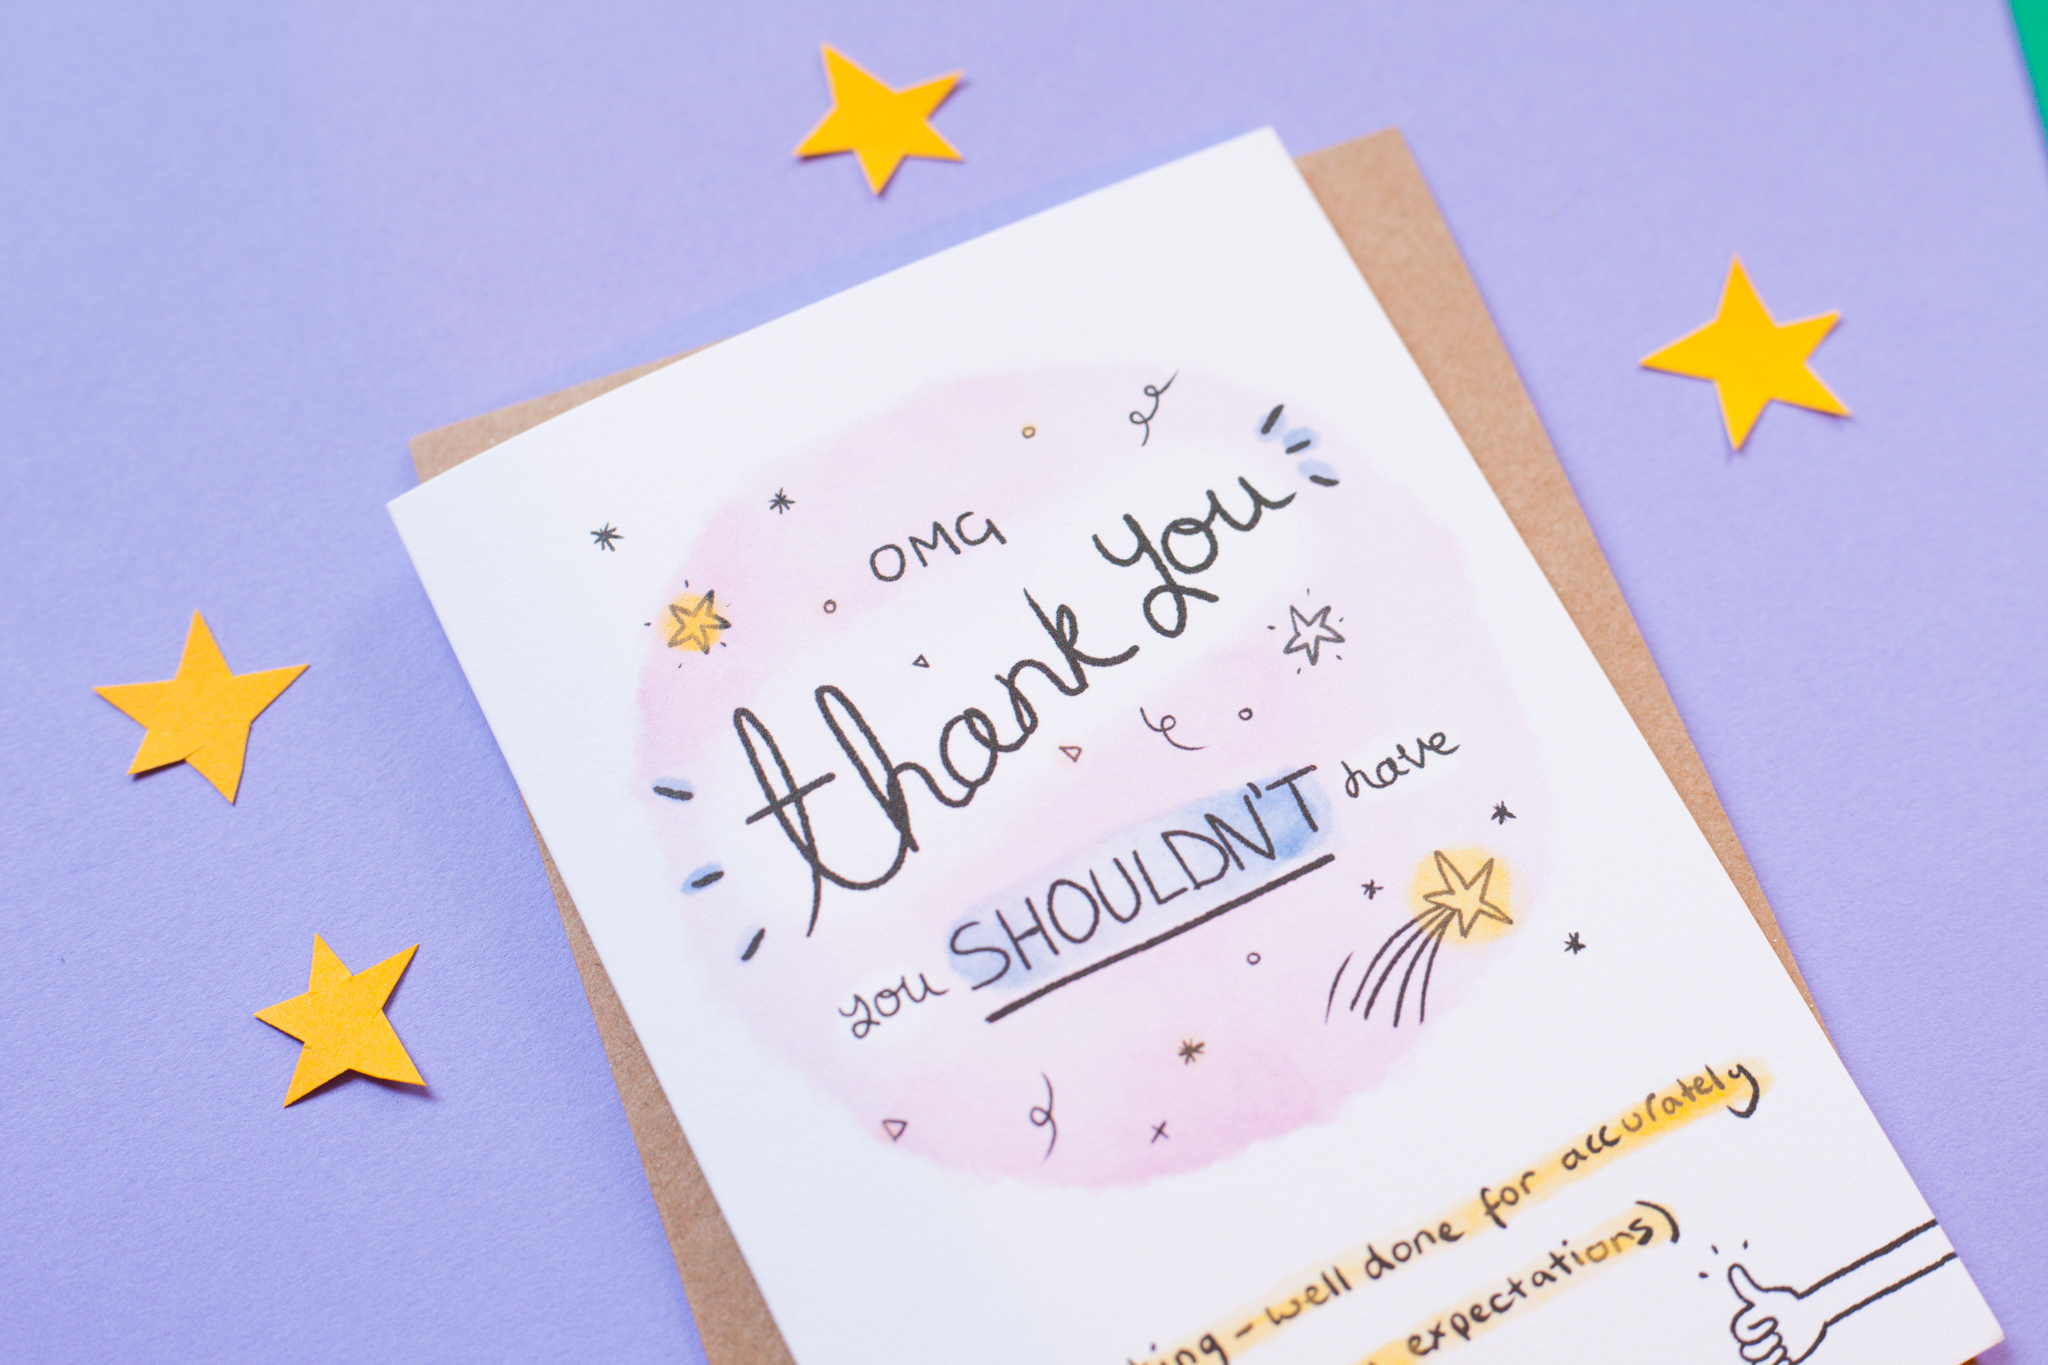 OMG
thank you
you SHOULDN'T have
- well done for accurately
expectations)